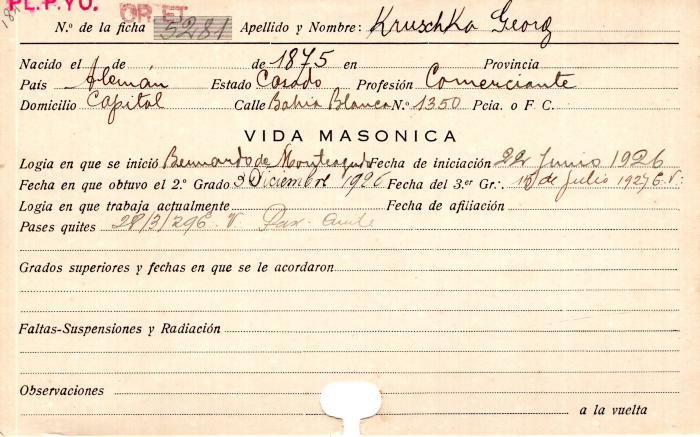 PL.P.YU.
OR.ET
N.º de la ficha 5281 Apellido y Nombre: Kruschka Georg
Nacido el de de 1875 en Provincia
País Alemán Estado Casado Profesión Comerciante
Domicilio Capital Calle Bahia Blanca N.º 1350 Pcia. o F. C.
VIDA MASONICA
Logia en que se inició Bernardo de Monteagudo Fecha de iniciación 22 Junio 1926
Fecha en que obtuvo el 2.º Grado 3 Diciembre 1926 Fecha del 3.er Gr.: de Julio 1927 E.V.:
Logia en que trabaja actualmente Fecha de afiliación
Pases quites 28/3/29 E. V.
Grados superiores y fechas en que se le acordaron
Faltas-Suspensiones y Radiación
Observaciones
a la vuelta